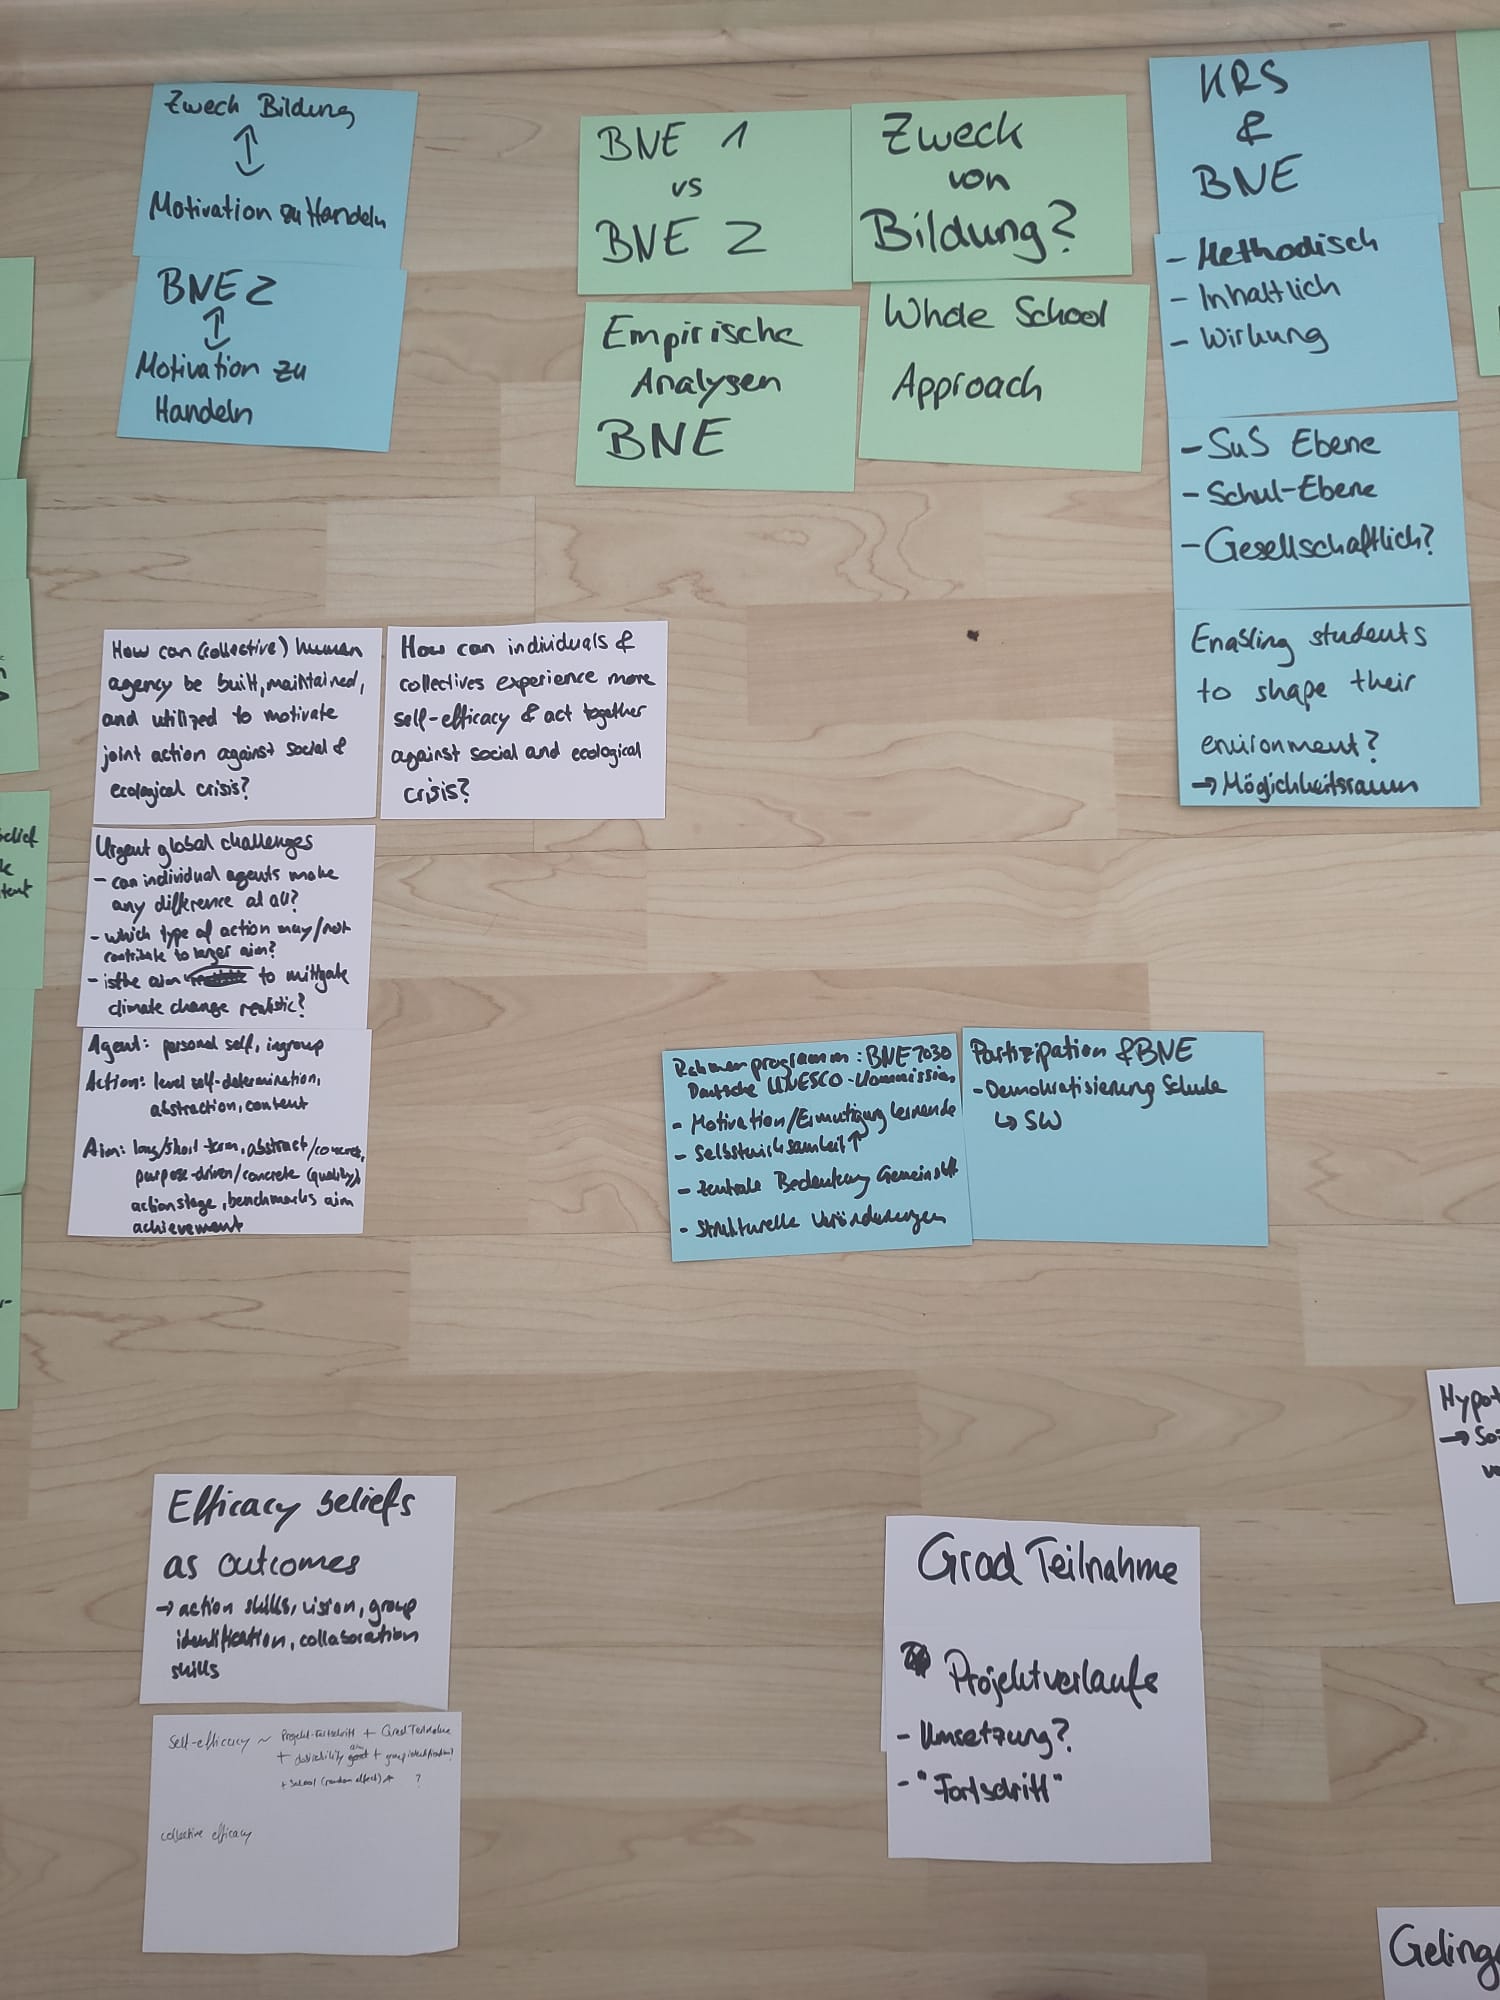 Zweck Bildung
↕
Motivation zu Handeln
BNE 2
↕
Motivation zu
Handeln
BNE 1
vs
BNE 2
Zweck
von
Bildung?
Empirische
Analysen
BNE
Whole School
Approach
KRS
&
BNE
- Methodisch
- Inhaltlich
- Wirkung
- SuS Ebene
- Schul-Ebene
- Gesellschaftlich?
Enabling students
to shape their
environment?
→ Möglichkeitsraum
How can (collective) human
agency be built, maintained,
and utilized to motivate
joint action against social &
ecological crisis?
How can individuals &
collectives experience more
self-efficacy & act together
against social and ecological
crisis?
Urgent global challenges
- can individual agents make
any difference at all?
- which type of action may/not
contribute to larger aim?
- is the aim to mitigate
climate change realistic?
Agent: personal self, ingroup
Action: level self-determination,
abstraction, content
Aim: long/short term, abstract/concrete,
purpose-driven/concrete (quality),
action stage, benchmarks aim
achievement
Rahmenprogramm: BNE 2030
Deutsche UNESCO-Kommission
- Motivation/Ermutigung Lernende
- Selbstwirksamkeit ↑
- zentrale Bedeutung Gemeinsch
- Strukturelle Veränderungen
Partizipation & BNE
- Demokratisierung Schule
↳ SW
Efficacy beliefs
as outcomes
→ action skills, vision, group
identification, collaboration
skills
Self-efficacy ~ Projekt-Fortschritt + Grad Teilnahme
+ desirability aim + group identification?
+ School (random effect) ?
collective efficacy
Grad Teilnahme
Projektverlaufs
- Umsetzung?
- "Fortschritt"
Hypot
→ So
Geling
elief